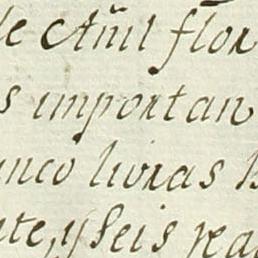 de Añil flor
s importan
inco livras B
nte, y seis rea